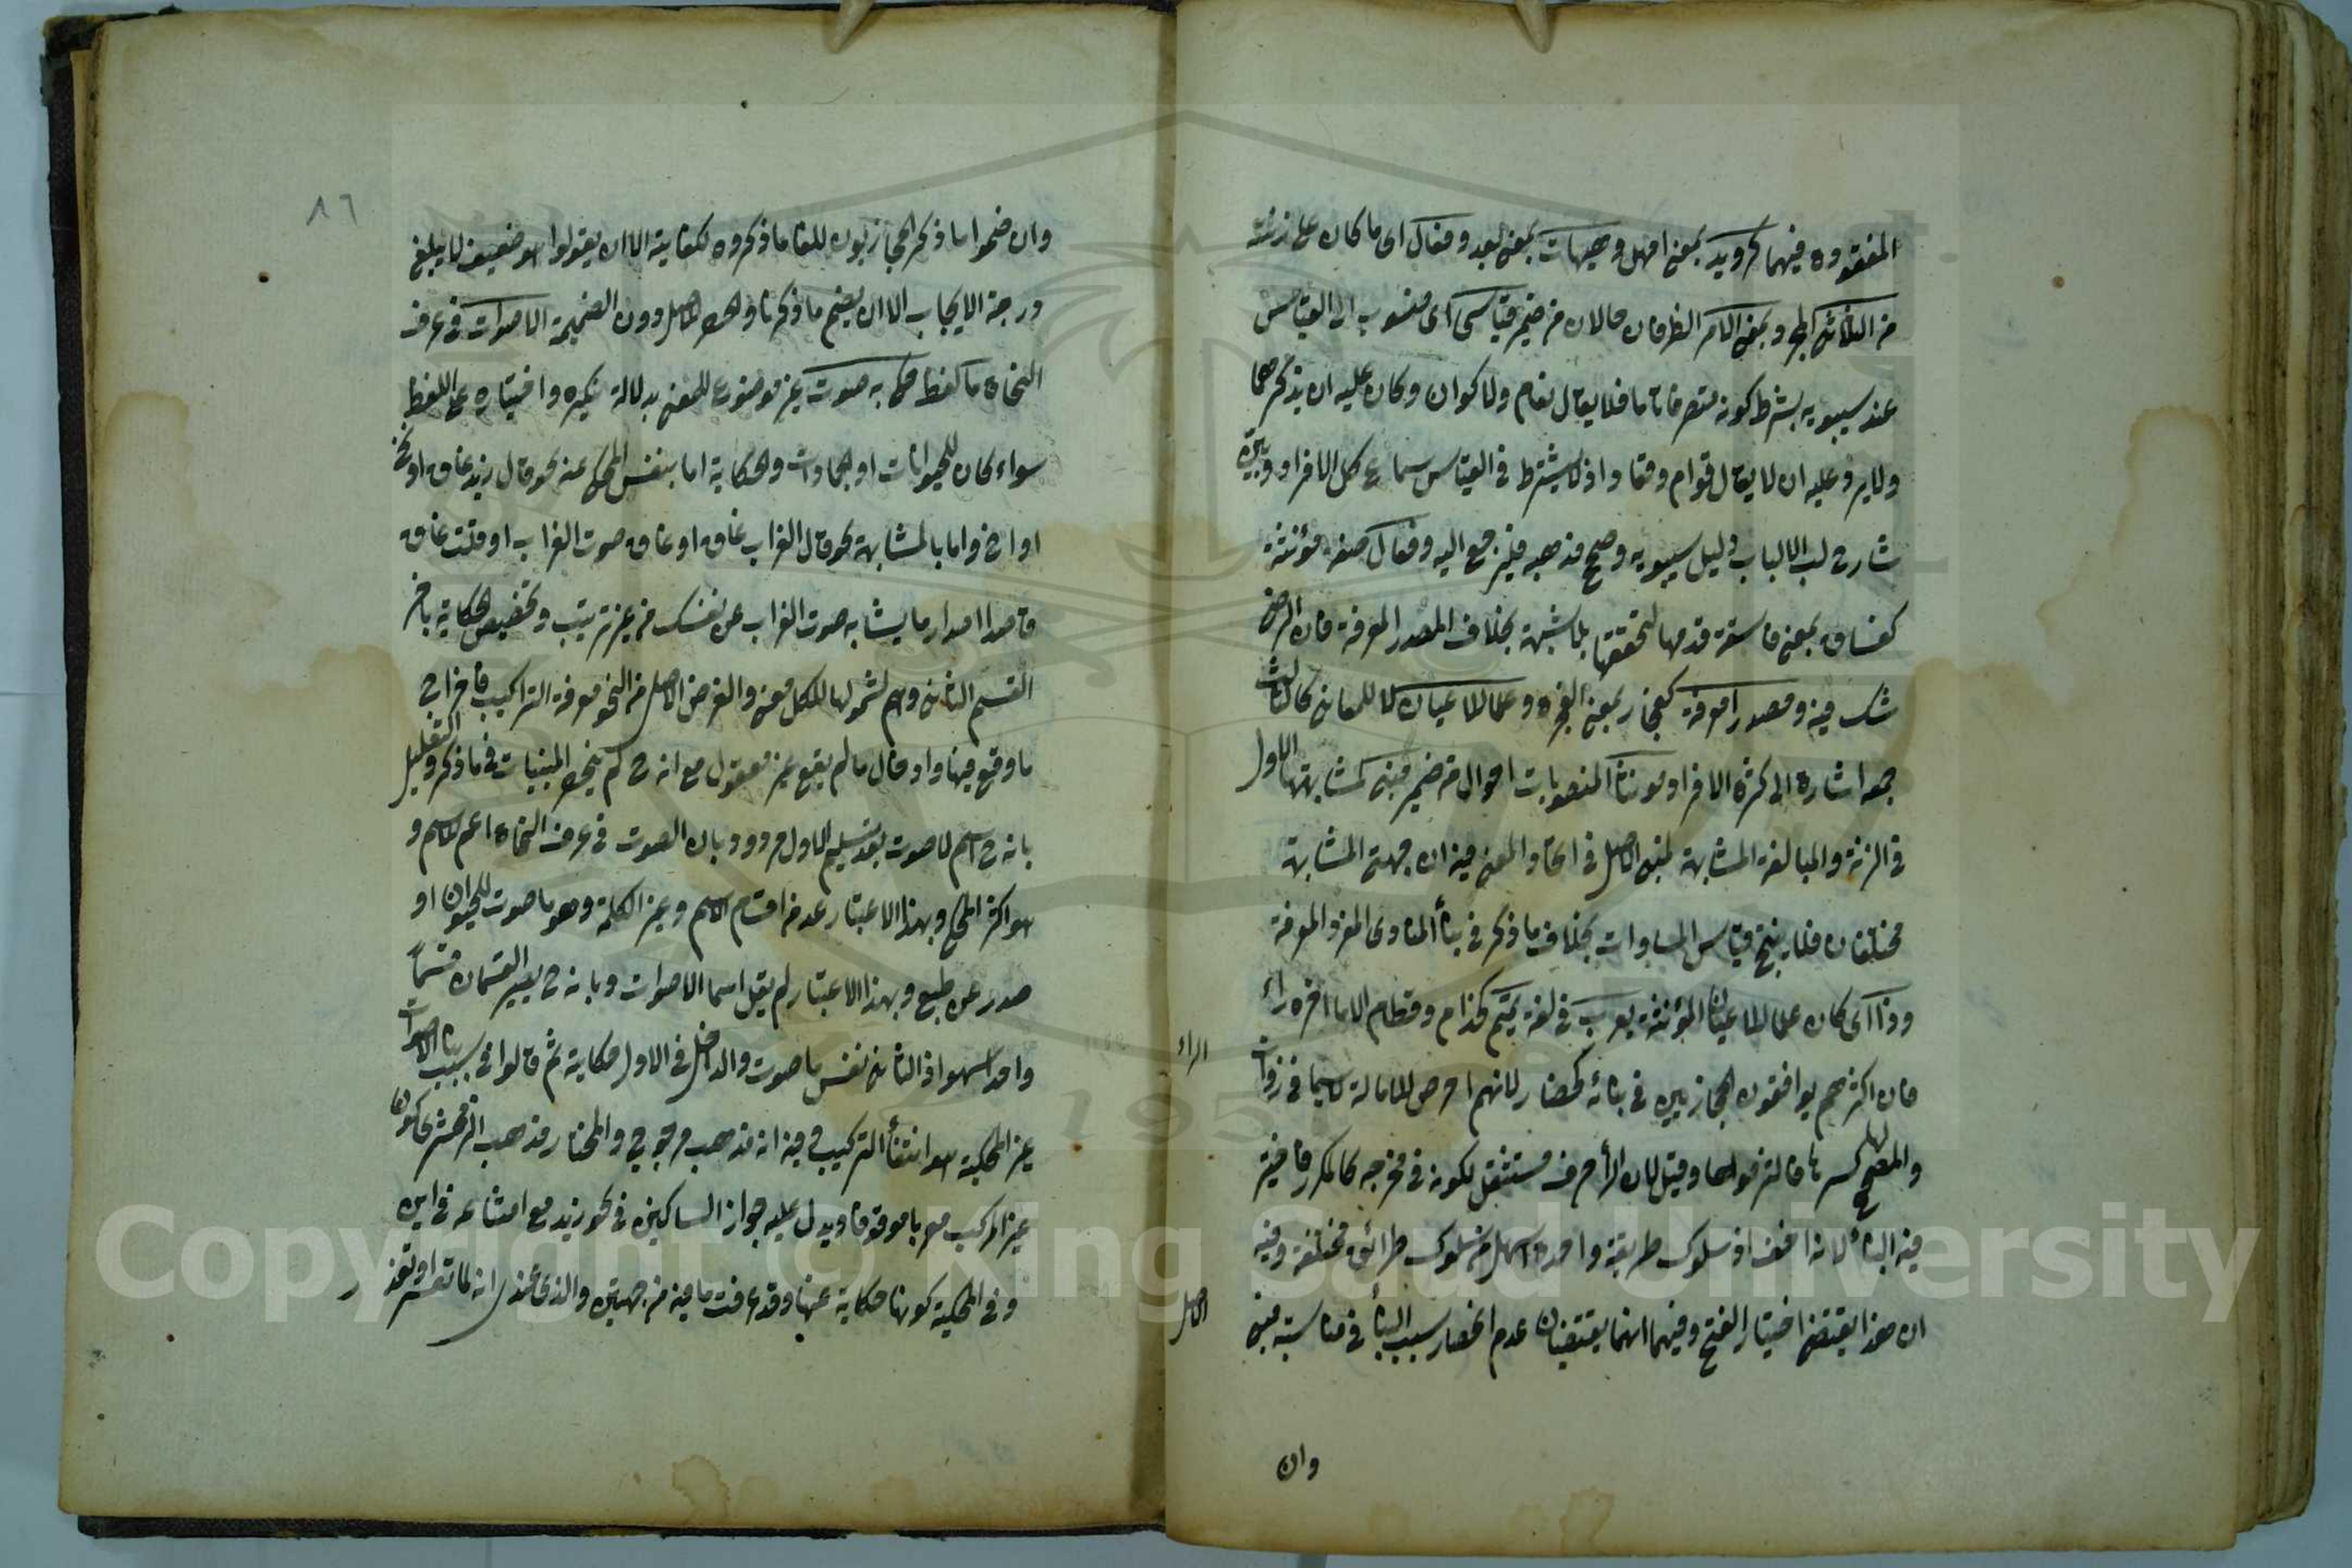 المفقودة فيهما كرويد بمعنى امهل وهيهات بمعنى بعد وفعال اى ما كان على زنته
من الثلاثى المجرد بمعنى الامر الظرفان حالان من ضمير قياسى اى منسوب الى القياس
عند سيبويه بشرط كونه متصرفا تاما فلا يقال نعام ولا كوان وكان عليه ان يذكرهما
ولا يرد عليه ان لا يقال قوام وقعاد اذ لا يشترط فى القياس سماع كل الافراد وبين
شارح لب الالباب دليل سيبويه وصحح مذهبه فليرجع اليه وفعال صفة مؤنثة
كفساق بمعنى فاسقة قدمها لتحققها بلا شبهة بخلاف المصدر المعرفة فان الرضى
شك فيه ومصدرا معرفة كفجار بمعنى الفجرة وعلما للاعيان لا للمعانى كالثالث
جمع اشارة الى كثرة الافراد مؤنثا المنصوبات احوال من ضمير مبنى لمشابهتها الاول
فى الزنة والمبالغة المشابهة لمبنى الاصل فى اتحاد المعنى فيه ان جهتى المشابهة
مختلفتان فلا ينتج قياس المساوات بخلاف ما ذكر فى بناء المنادى المفرد المعرفة
وذا اى كان علما للاعيان المؤنثة يعرب فى لغة تميم كحذام وقطام الا ما اخره راء
الراء
فان اكثرهم يوافقون الحجازيين فى بنائه كحضار لانهم احرص للامالة لا سيما فى ذوات
والمصحح لها كسرها فالتزموها وقيل لان الراء حرف مستثقل لكونه فى مخرجه كالمكرر فاختير
فيه البناء لانه اخف اذ سلوك طريقة واحدة اسهل من سلوك طرائق مختلفة وفيه
ان هذا يقتضى اختيار الفتح وفيهما انهما يقتضيان عدم انحصار سبب البناء فى مناسبة مبنى
الاصل
وان
٨٦
وان ضموا ما ذكر الحجازيون للغا ما ذكروه لكفايته الا ان يقولوا هو ضعيف لا يبلغ
درجة الايجاب الا ان يضم ما ذكرنا والحصر للاصل دون الضميمة الاصوات فى عرف
النحاة ما كلفظ حكى به صوت غير موضوع للمعنى بدلالة تنكيره واختياره على اللفظ
سواء كان للحيوانات او الجمادات والحكاية اما بنفس المحكى عنه نحو قال زيد غاق او نخ
او اخ واما بالمشابهة نحو قال الغراب غاق او غاق صوت الغراب او قلت غاق
قاصدا اصدار ما يشابه صوت الغراب عن نفسك من غير ترتيب وتخصيص الحكاية باخر
القسم الثانى وهم لشمولها للكل معنى والغرض الاصلى من النحو معرفة التراكيب فاخراج
ما وقع فيها وادخال ما لم يقع غير معقول مع انه ح لم ينحصر المبنيات فى ما ذكر والتعليل
بانه ح اسم لا صوت بعد تسليم الاول مردود بان الصوت فى عرف النحاة اعم للاسم و
هو اكثر المحكى وبهذا الاعتبار عد من اقسام الاسم وغير الكلمة وهو ما صوت للحيوان او
صدر عن طبع وبهذا الاعتبار لم يقل اسما الاصوات وبانه ح يصير القسمان قسما
واحدا سهو اذ الثانى نفس ما صوت والداخل فى الاول حكاية ثم قالوا فى سبب بناء الاصوات
غير المحكية هو انتفاء التركيب وفيه انه مذهب مرجوح والمختار مذهب الزمخشرى كون
غير المركب معربا موقوفا ويدل عليه جواز الساكنين فى نحو زيد مع امتناعه فى اين
وفى المحكية كونها حكاية عنها وقد عرفت ما فيه من جهتين والذى عندى انه لما تعسر او تعذر